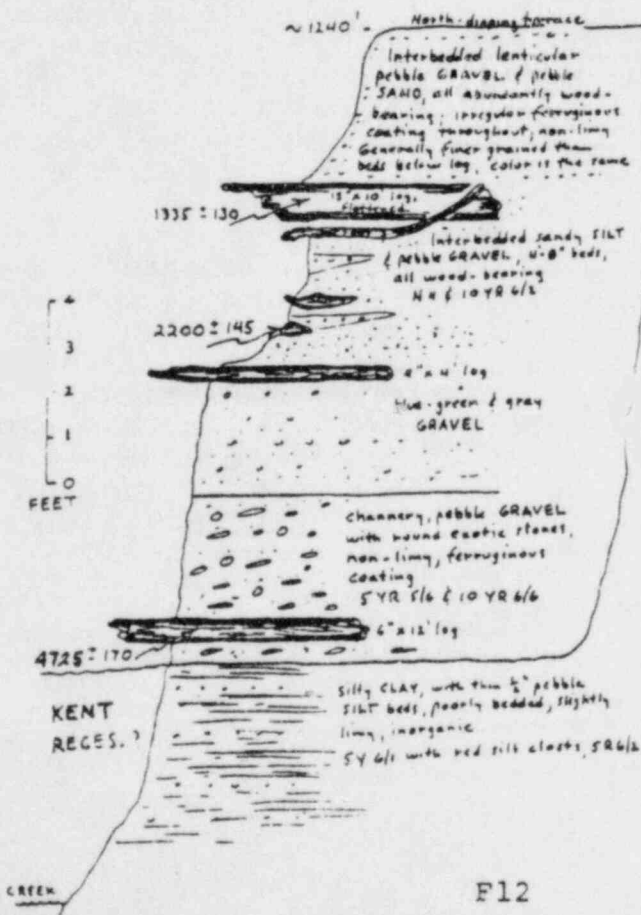 ~1240'
North-dipping terrace
Interbedded lenticular
pebble GRAVEL & pebble
SAND, all abundantly wood-
bearing; irregular ferruginous
coating throughout; non-limy
Generally finer grained than
beds below log, color is the same
10' log,
flattened
1335 ± 130
Interbedded sandy SILT
& pebble GRAVEL, 4-8" beds,
all wood-bearing
N4 & 10 YR 6/2
4
2200 ± 145
3
2
x 4' log
Blue-green & gray
GRAVEL
1
0
FEET
Channery, pebble GRAVEL
with round exotic stones,
non-limy, ferruginous
coating
5 YR 5/6 & 10 YR 6/6
6" x 12' log
4725 ± 170
Silty CLAY, with thin ½" pebble
SILT beds, poorly bedded, slightly
limy, inorganic
5Y 6/1 with red silt clasts, 5R 6/2
KENT
RECES.?
CREEK
F12